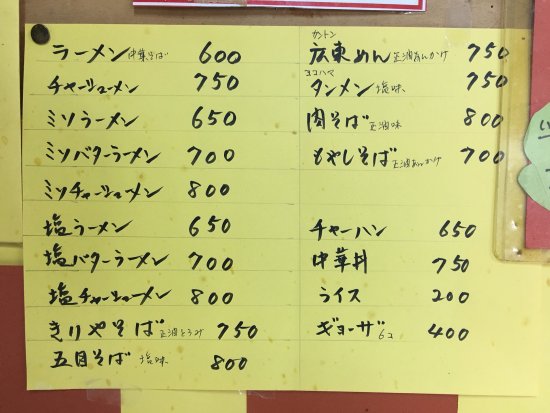 ラーメン 中華そば 600
チャーシューメン 750
ミソラーメン 650
ミソバターラーメン 700
ミソチャーシューメン 800
塩ラーメン 650
塩バターラーメン 700
塩チャーシューメン 800
きりやそば 正油とろみ 750
五目そば 塩味 800
カントン
広東めん 正油あんかけ 750
ヨコハマ
タンメン 塩味 750
肉そば 正油味 800
もやしそば 正油あんかけ 700
チャーハン 650
中華丼 750
ライス 200
ギョーザ 6コ 400